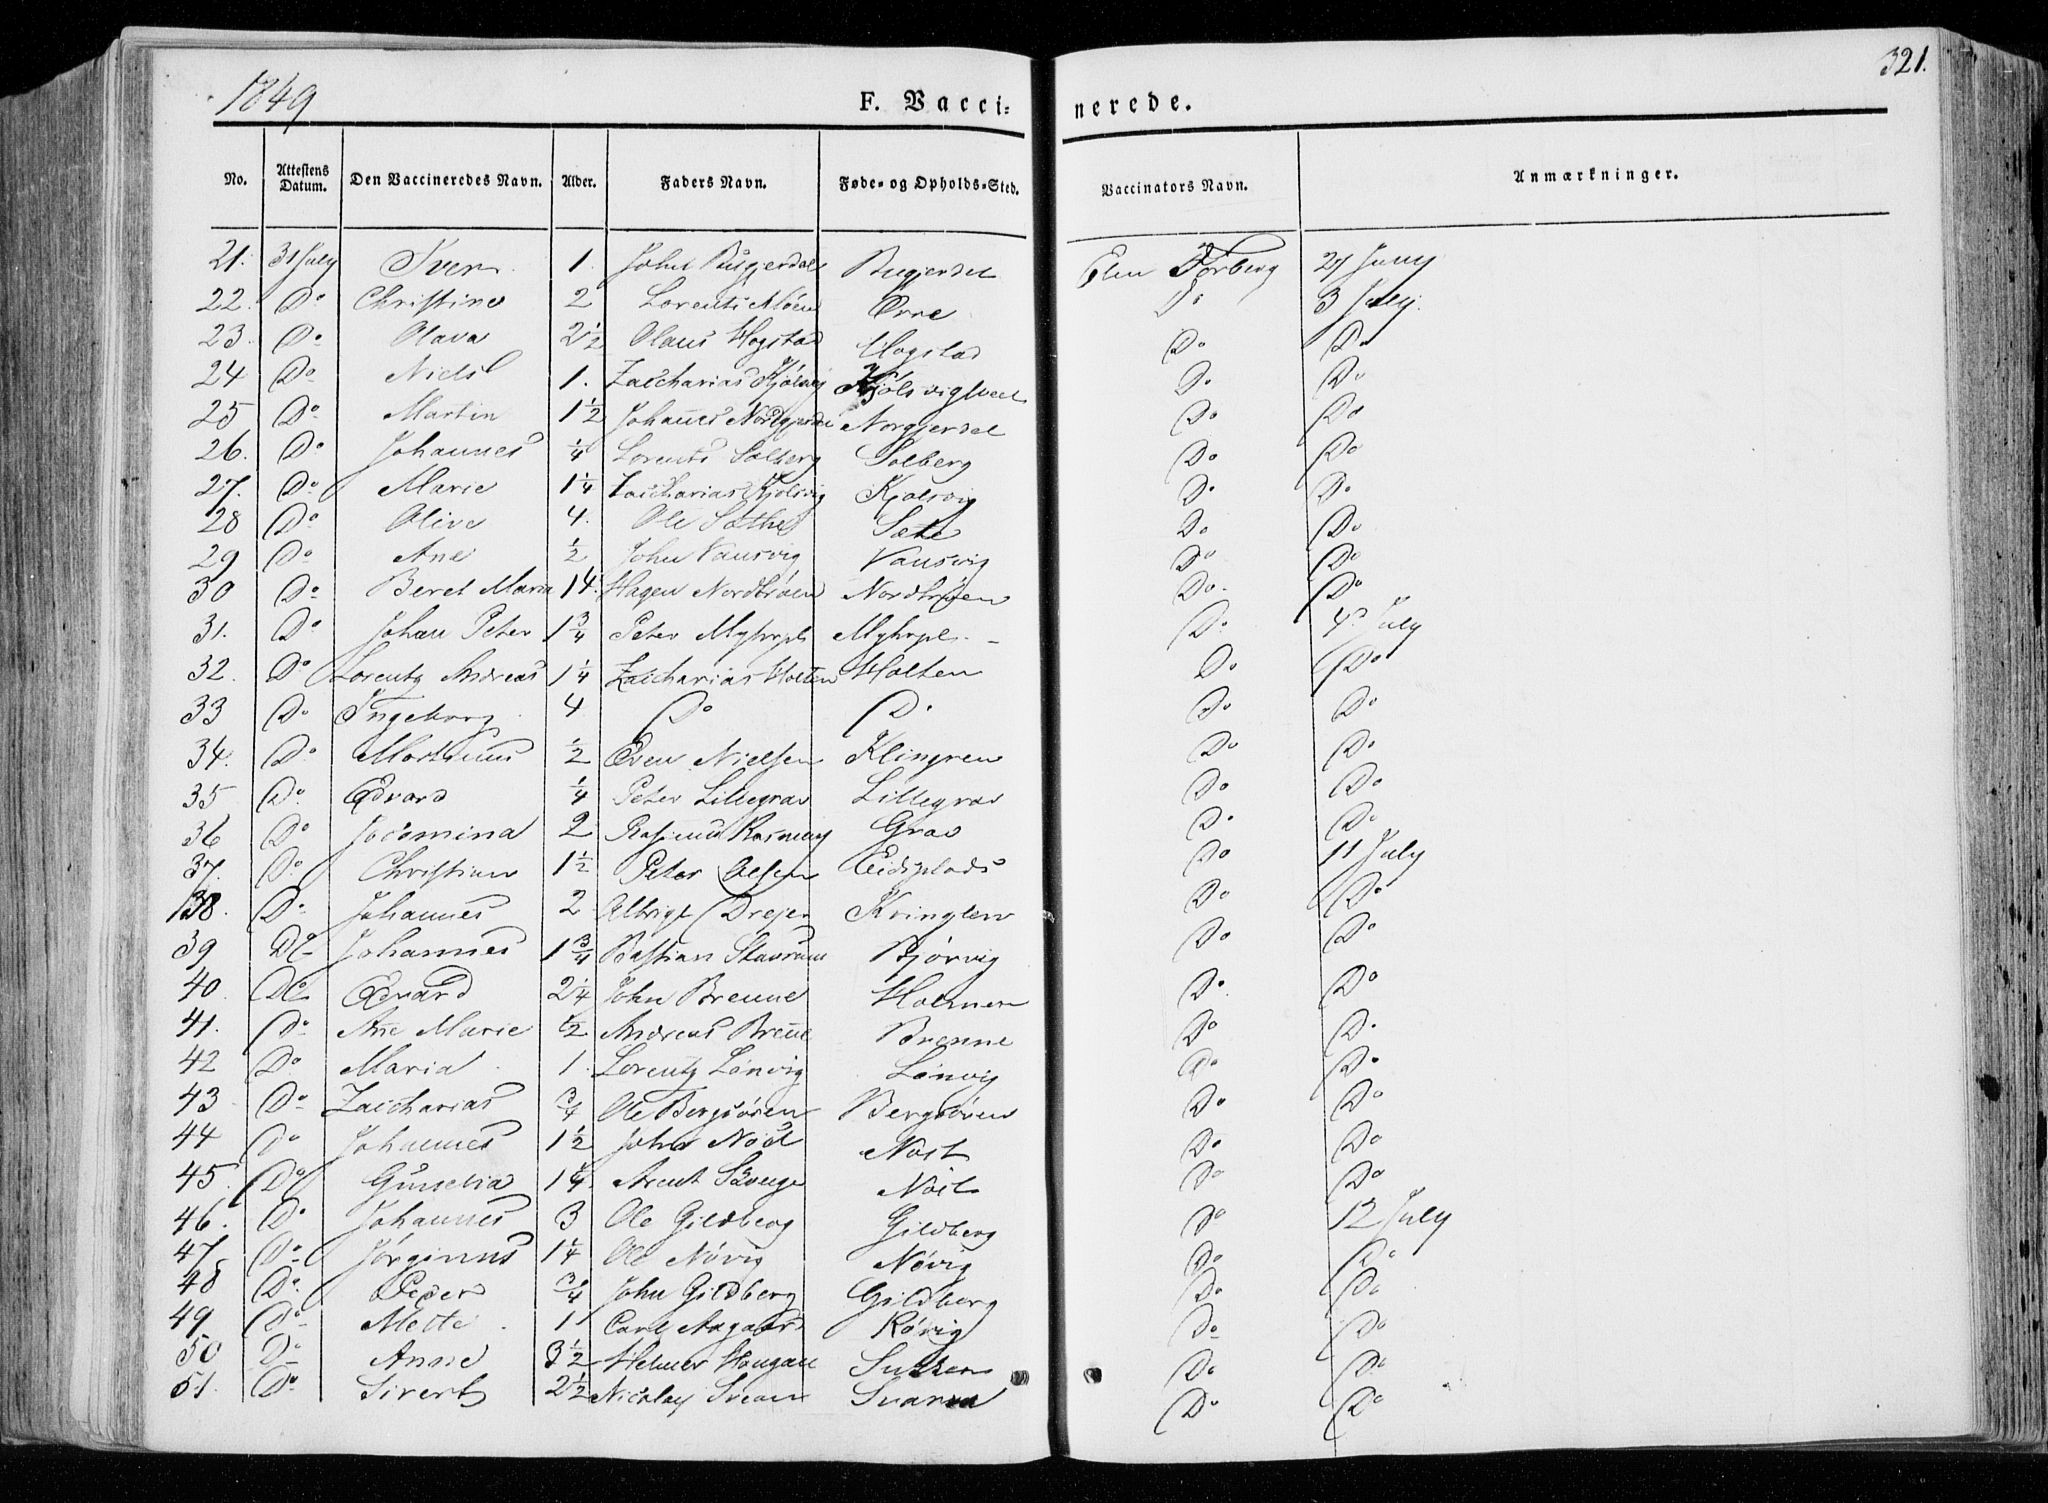 1849 F. Vaccinerede. 321.
No. Attestens Datum. Den Vaccineredes Navn. Alder. Faders Navn. Føde- og Opholds-Sted. Vaccinators Navn. Anmærkninger.
21. 31 July Iver 1. John Bugjerdal Bugjerdel Elen Forberg 27 Juny
22. Do Christine 2 Lorents Moen Orne Do 3 July
23. Do Olava 2½ Olaus Hogstad Hogstad Do Do
24 Do Niels 1. Zaccharias Kjölsvig Do Do
25 Do Martin 1½ Johañes Nordgjerdel Norgjerdel Do Do
26. Do Johannes ¼ Lorents Solberg Solberg Do Do
27. Do Marie 1¼ Zaccharias Kjolsvig Kjolsvig Do Do
28 Do Olive 4. Ole Sæther Sæte Do Do
29 Do Ane ½ John Vansvig Vansvig Do Do
30 Do Beret Maria 14. Hagen Nordtröen Nordtröen Do. Do
31. Do Johan Peter 1¾ Peter Myhrpl Myhrpl. Do 4 July
32. Do Lorentz Andreas 1¼ Zaccharias Holten Holten Do Do
33 Do Ingeborg 4 Do Do Do Do
34. Do Martinus ½ Even Nielsen Klingren Do Do
35 Do Edvard ¼ Peter Lillegrav Lillegrav Do Do
36 Do Jocomina 2 Rasmus Grav Do Do
37. Do Christian 1½ Peter Olsen Eidsplads Do 11 July
38. Do Johannes 2 Albrigt Drejer Kringlen Do Do
39 Do Johannes 1¾ Bastian Stavrum Bjørvig Do Do
40 Do Edvard 2¼ John Brenne Holmen Do Do
41. Do Añe Marie ½ Andreas Breñe Brenne Do Do
42 Do Maria 1. Lorentz Lönvig Lönvig Do Do
43 Do Zaccharias ¾ Ole Bergsören Bergsören Do Do
44 Do Johannes 1½ John Nöst Nöst Do Do
45. Do Gunselia 1¼ Arent Nöst Do Do
46. Do Johannes 3 Ole Gildberg Gildberg Do 12 July
47. Do Jörginus 1¼ Ole Növig Növig Do Do
48 Do Peder ¾ John Gildberg Gildberg Do Do
49 Do Mette 1 Carl Aagaard Rövig Do Do
50 Do Anne 3½ Helmer Haugan Do Do
51. Do Sivert 2½ Nicolay Svean Do Do